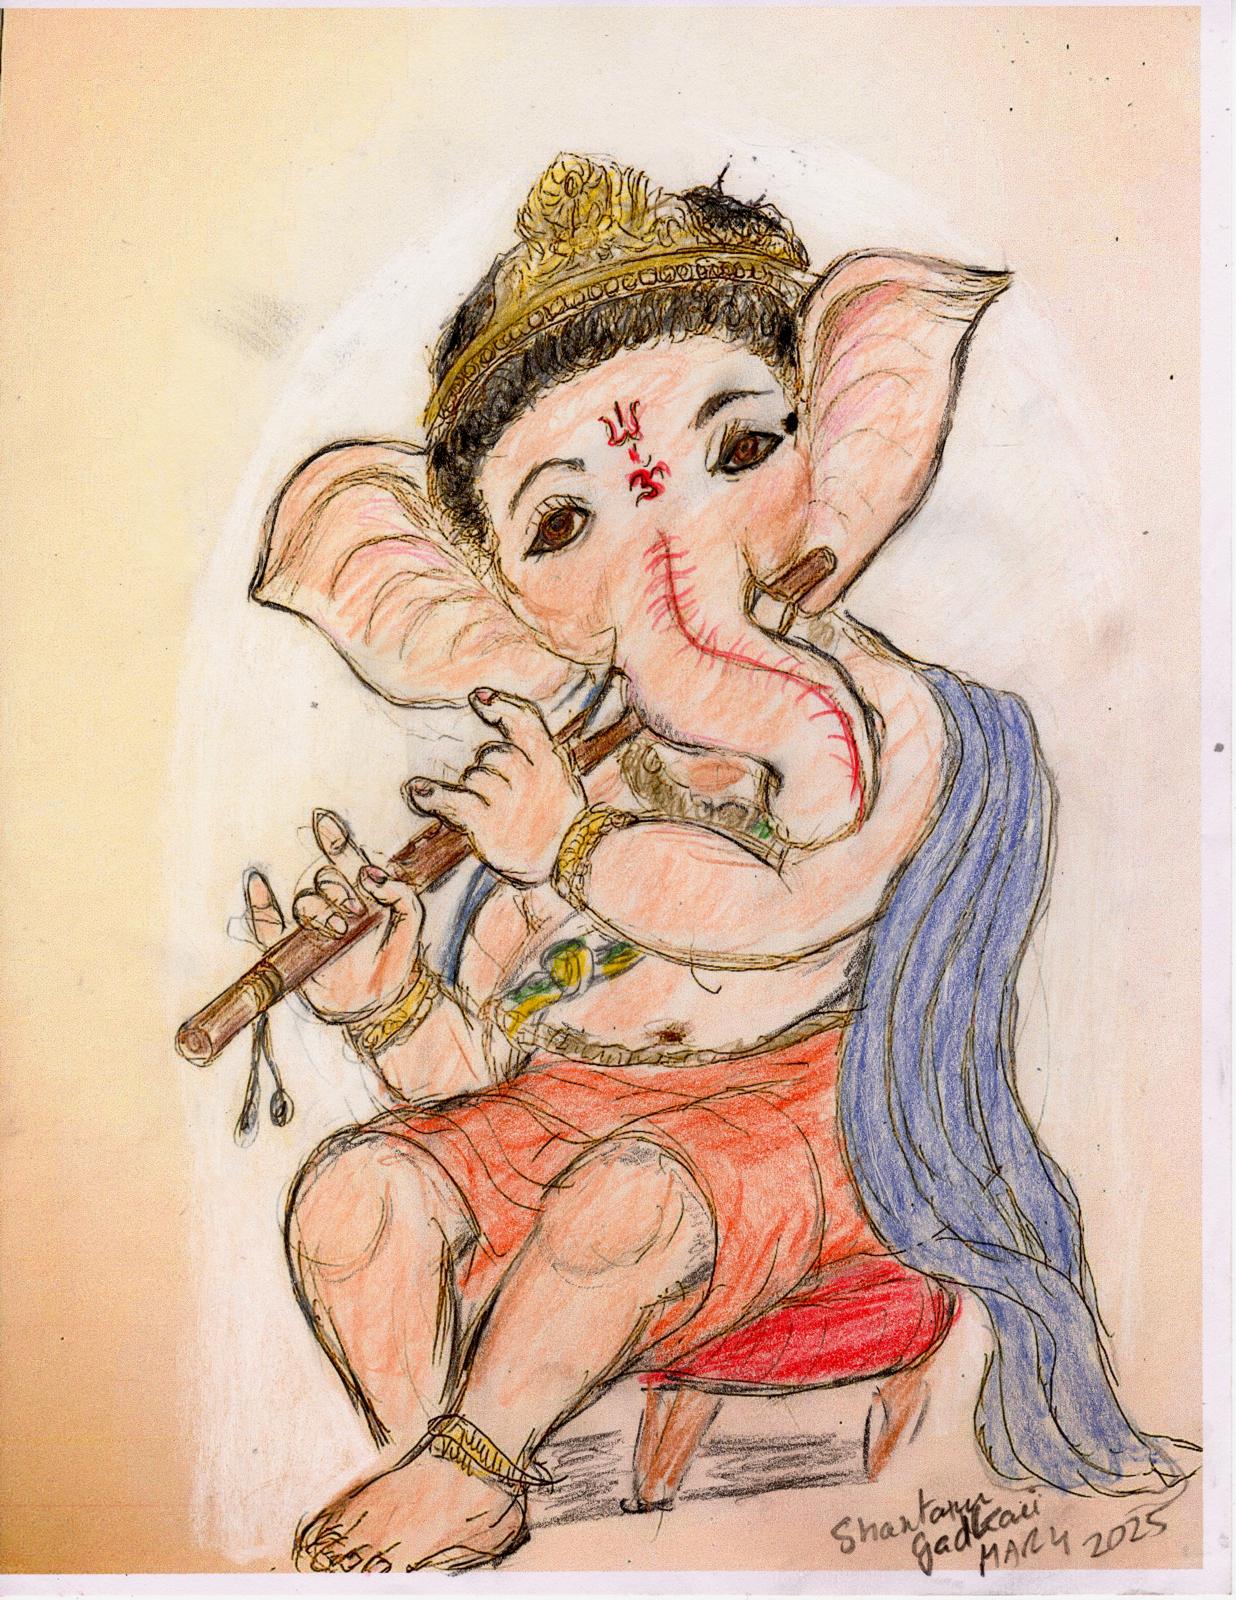 ॐ
Shantanu
Gadkari
MAR 4 2025